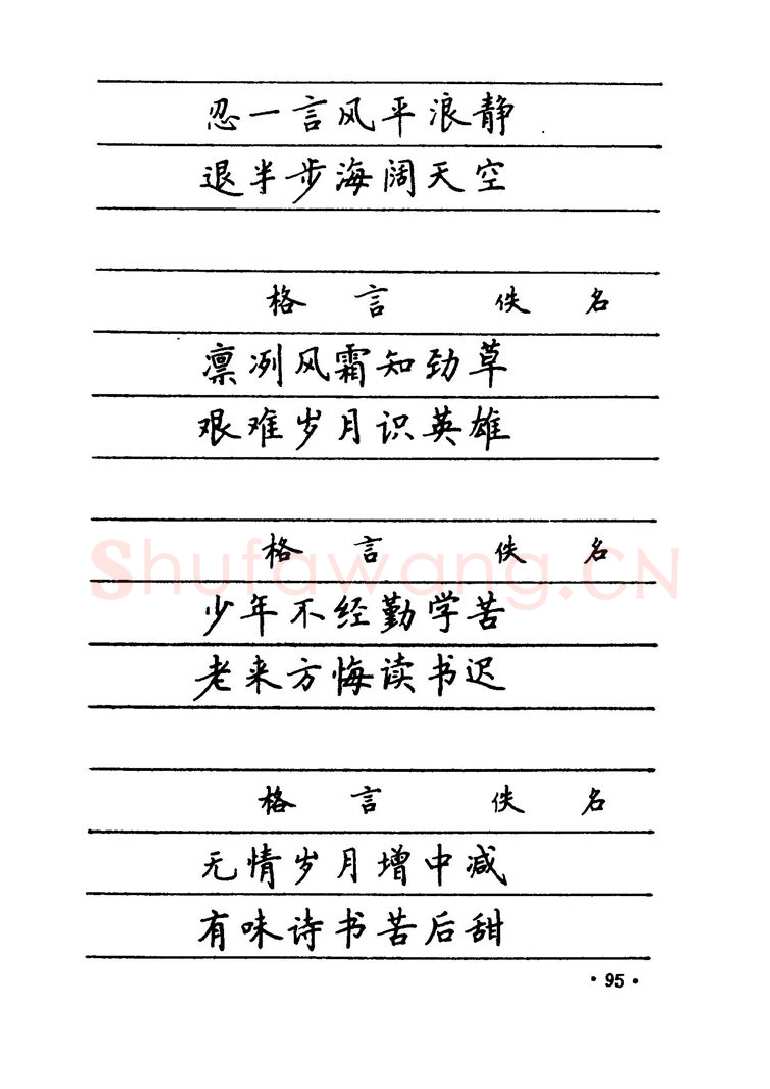 忍一言风平浪静
退半步海阔天空
格 言 佚 名
凛冽风霜知劲草
艰难岁月识英雄
格 言 佚 名
少年不经勤学苦
老来方悔读书迟
格 言 佚 名
无情岁月增中减
有味诗书苦后甜
·95·
Shufawang.CN